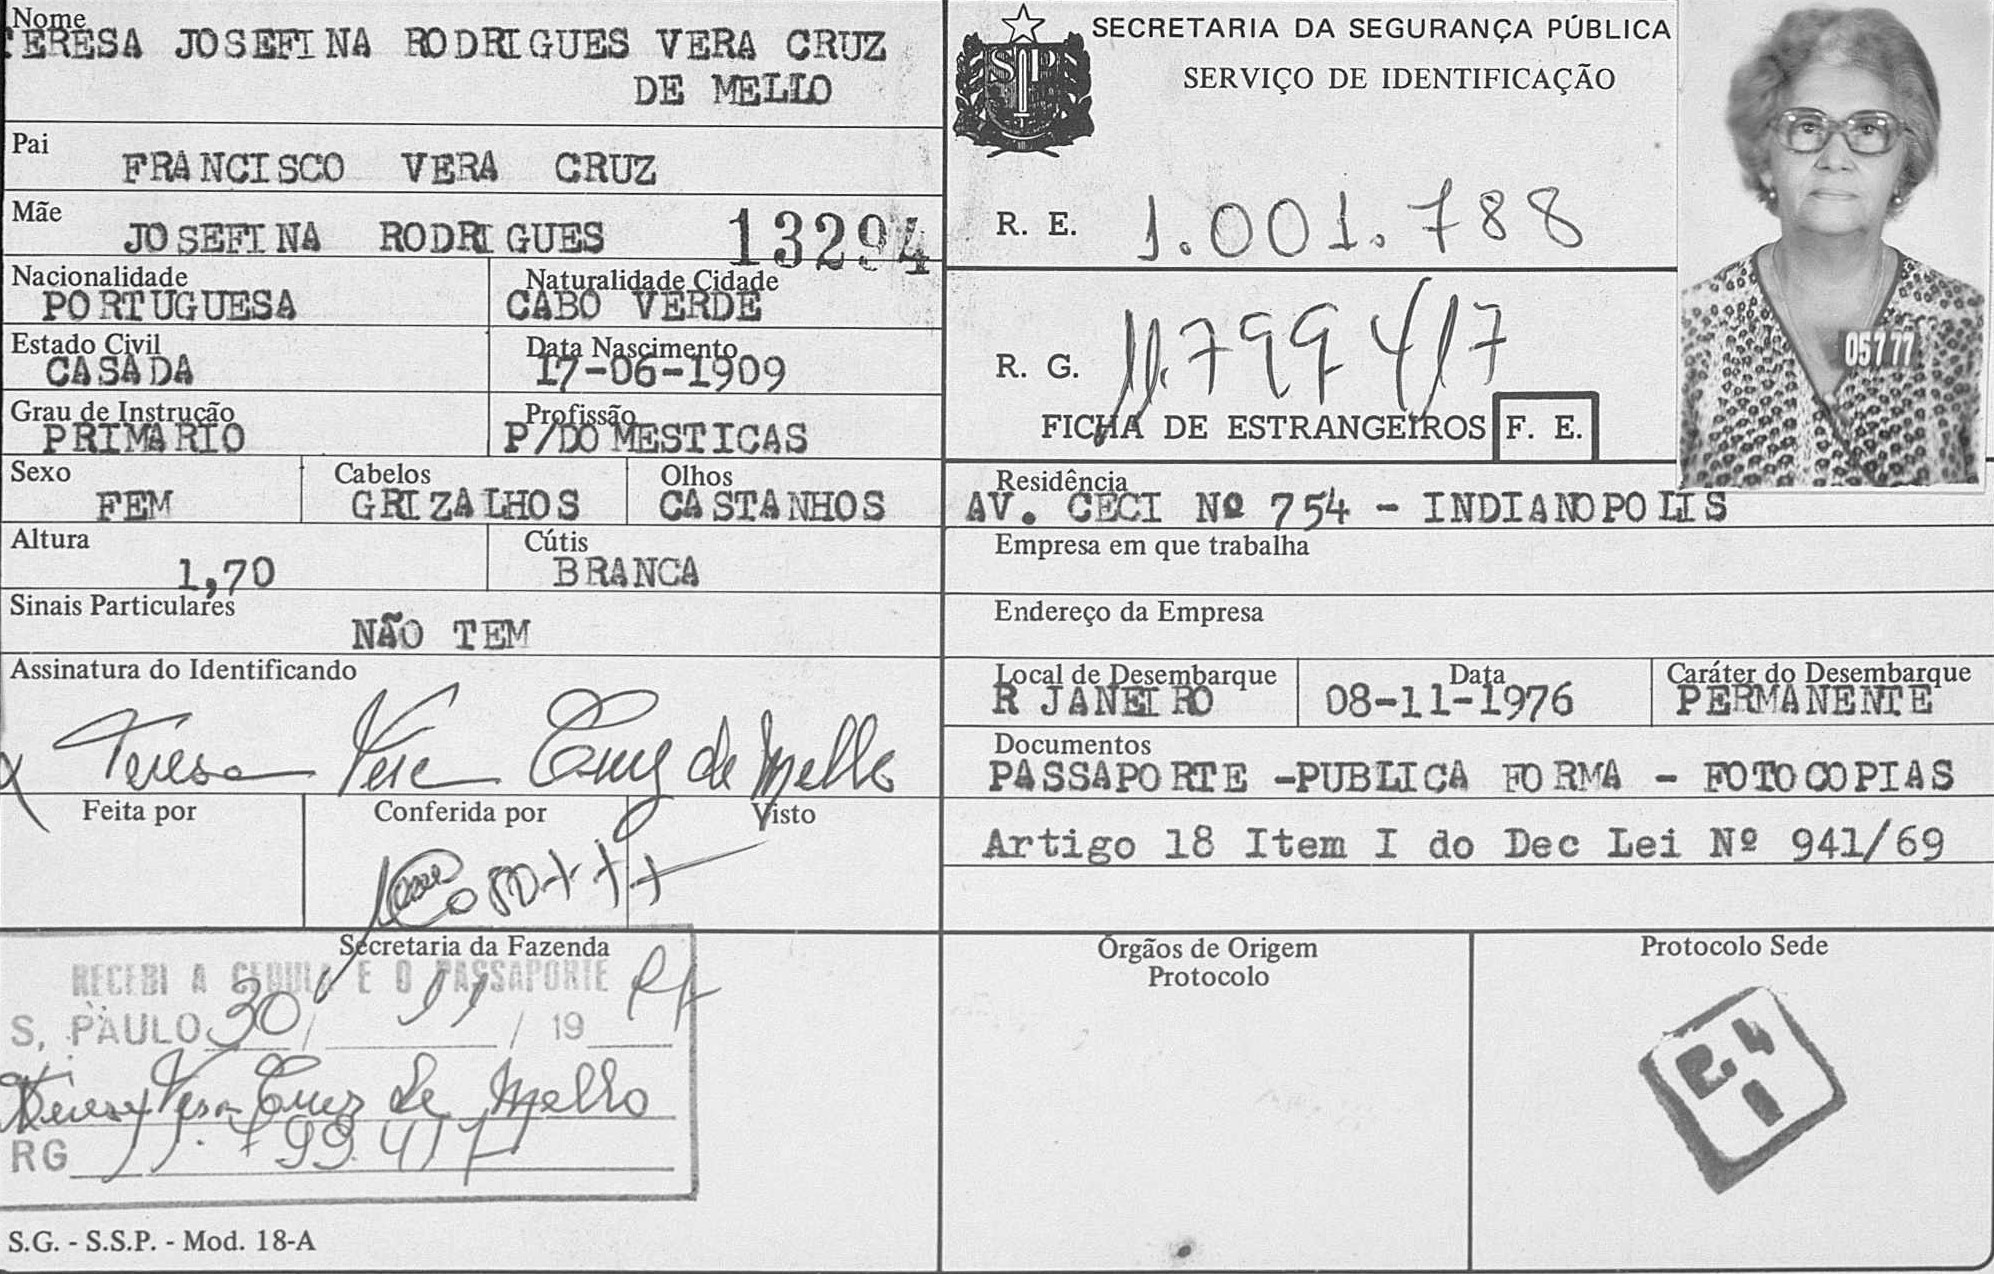 Nome
TERESA JOSEFINA RODRIGUES VERA CRUZ
DE MELLO
Pai
FRANCISCO VERA CRUZ
Mãe
JOSEFINA RODRIGUES
13294
Nacionalidade
PORTUGUESA
Naturalidade Cidade
CABO VERDE
Estado Civil
CASADA
Data Nascimento
17-06-1909
Grau de Instrução
PRIMARIO
Profissão
P/DOMESTICAS
Sexo
FEM
Cabelos
GRIZALHOS
Olhos
CASTANHOS
Altura
1,70
Cútis
BRANCA
Sinais Particulares
NÃO TEM
Assinatura do Identificando
Teresa Vera Cruz de Mello
Feita por
Conferida por
Visto
Secretaria da Fazenda
RECEBI A CEDULA E O PASSAPORTE
S. PAULO 30 / 11 / 19
Teresa Vera Cruz de Mello
RG 11.799.417
S.G. - S.S.P. - Mod. 18-A
SP
SECRETARIA DA SEGURANÇA PÚBLICA
SERVIÇO DE IDENTIFICAÇÃO
R. E. 1.001.788
R. G. 11.799417
FICHA DE ESTRANGEIROS F. E.
05777
Residência
AV. CECI Nº 754 - INDIANOPOLIS
Empresa em que trabalha
Endereço da Empresa
Local de Desembarque
R JANEIRO
Data
08-11-1976
Caráter do Desembarque
PERMANENTE
Documentos
PASSAPORTE -PUBLICA FORMA - FOTOCOPIAS
Artigo 18 Item I do Dec Lei Nº 941/69
Órgãos de Origem
Protocolo
Protocolo Sede